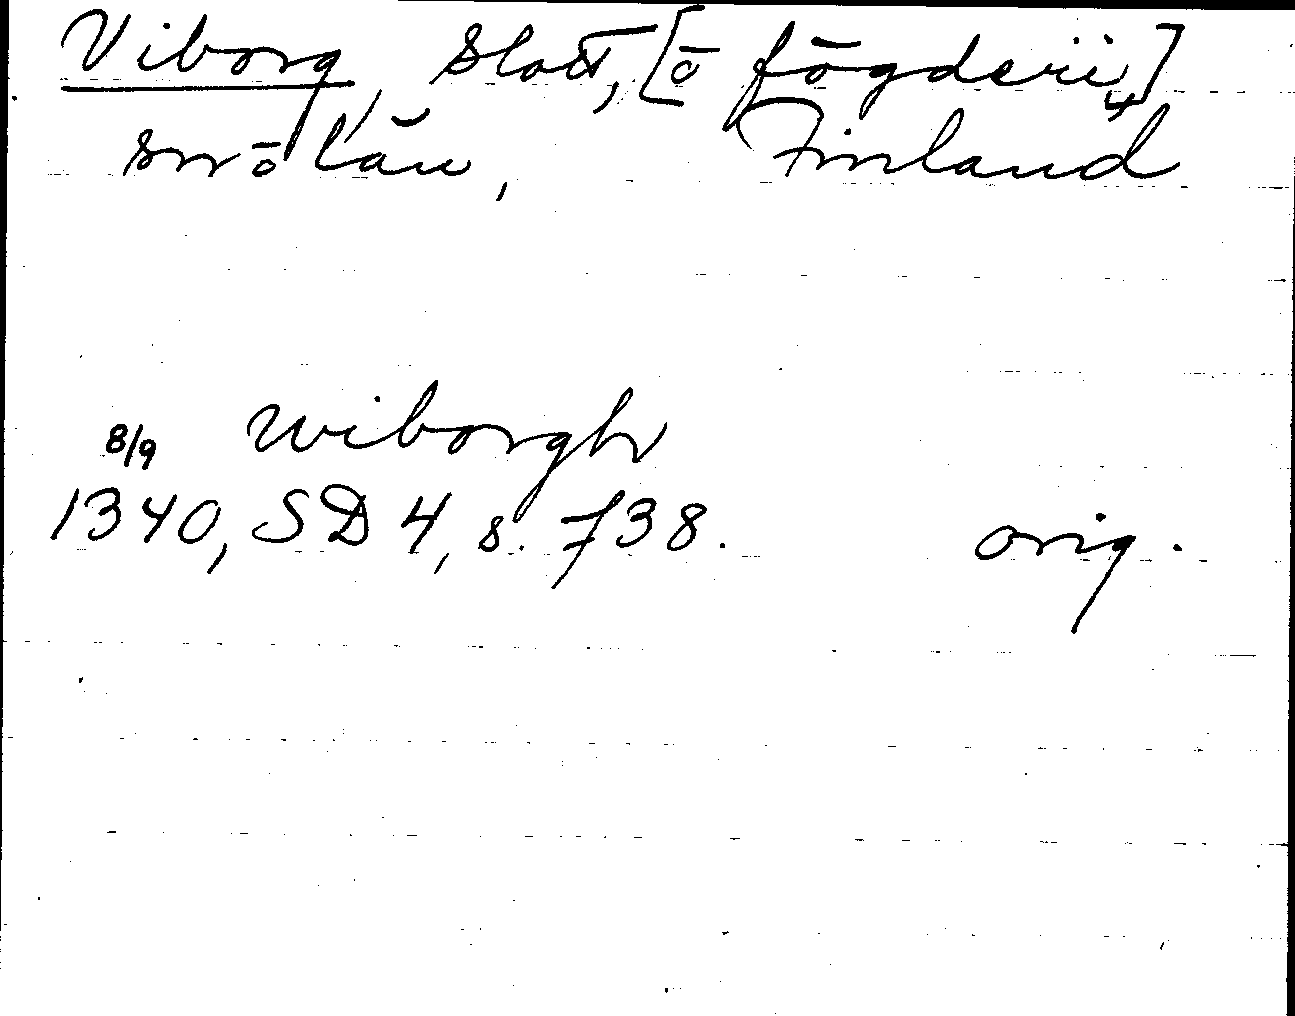 Viborg, slott, [ö fögderi,]
sm ö län, Finland
8/9 Wiborgh
1340, SD 4, s. 738. orig.